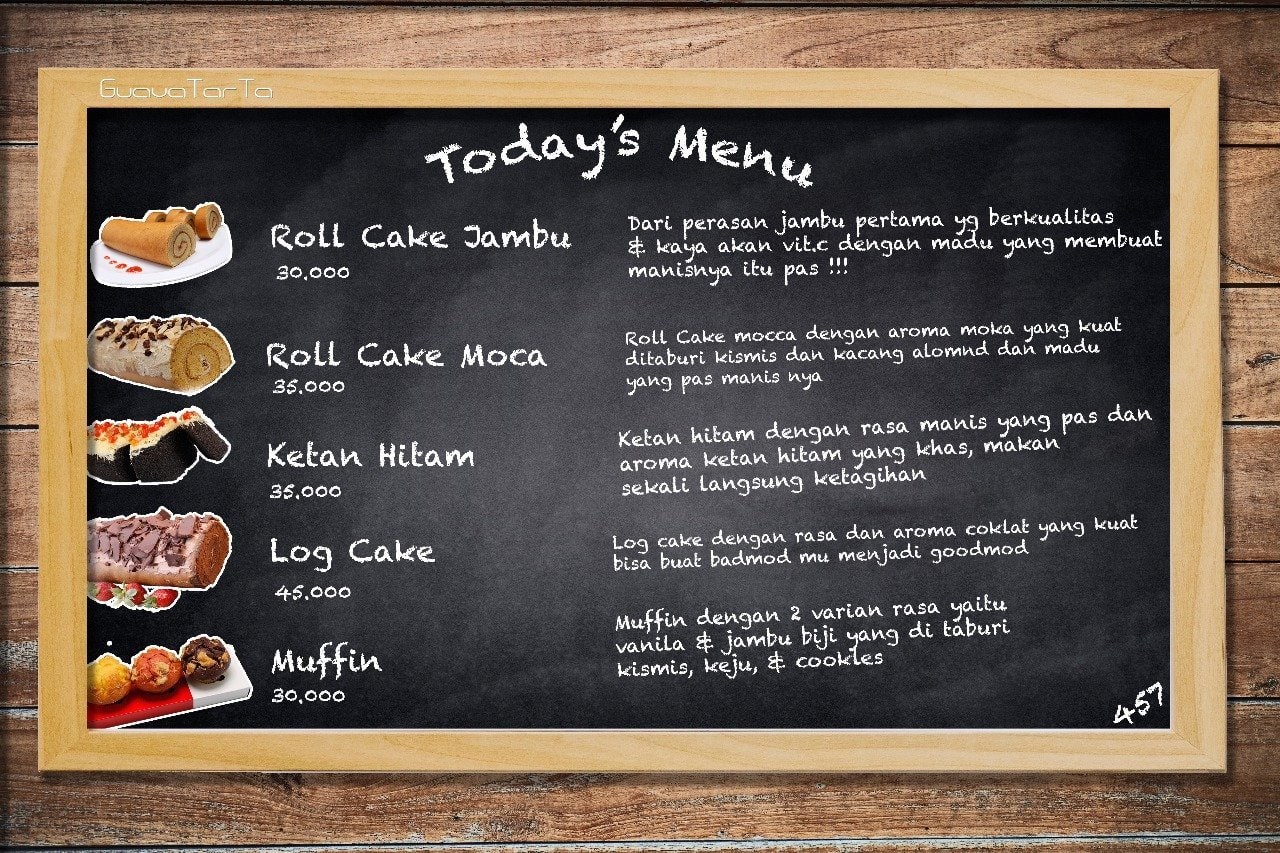 GuavaTarTa
Today's Menu
Roll Cake Jambu
30.000
Dari perasan jambu pertama yg berkualitas
& kaya akan vit.c dengan madu yang membuat
manisnya itu pas !!!
Roll Cake Moca
35.000
Roll Cake mocca dengan aroma moka yang kuat
ditaburi kismis dan kacang alomnd dan madu
yang pas manis nya
Ketan Hitam
35.000
Ketan hitam dengan rasa manis yang pas dan
aroma ketan hitam yang khas, makan
sekali langsung ketagihan
Log Cake
45.000
Log cake dengan rasa dan aroma coklat yang kuat
bisa buat badmod mu menjadi goodmod
Muffin
30.000
Muffin dengan 2 varian rasa yaitu
vanila & jambu biji yang di taburi
kismis, keju, & cookies
457